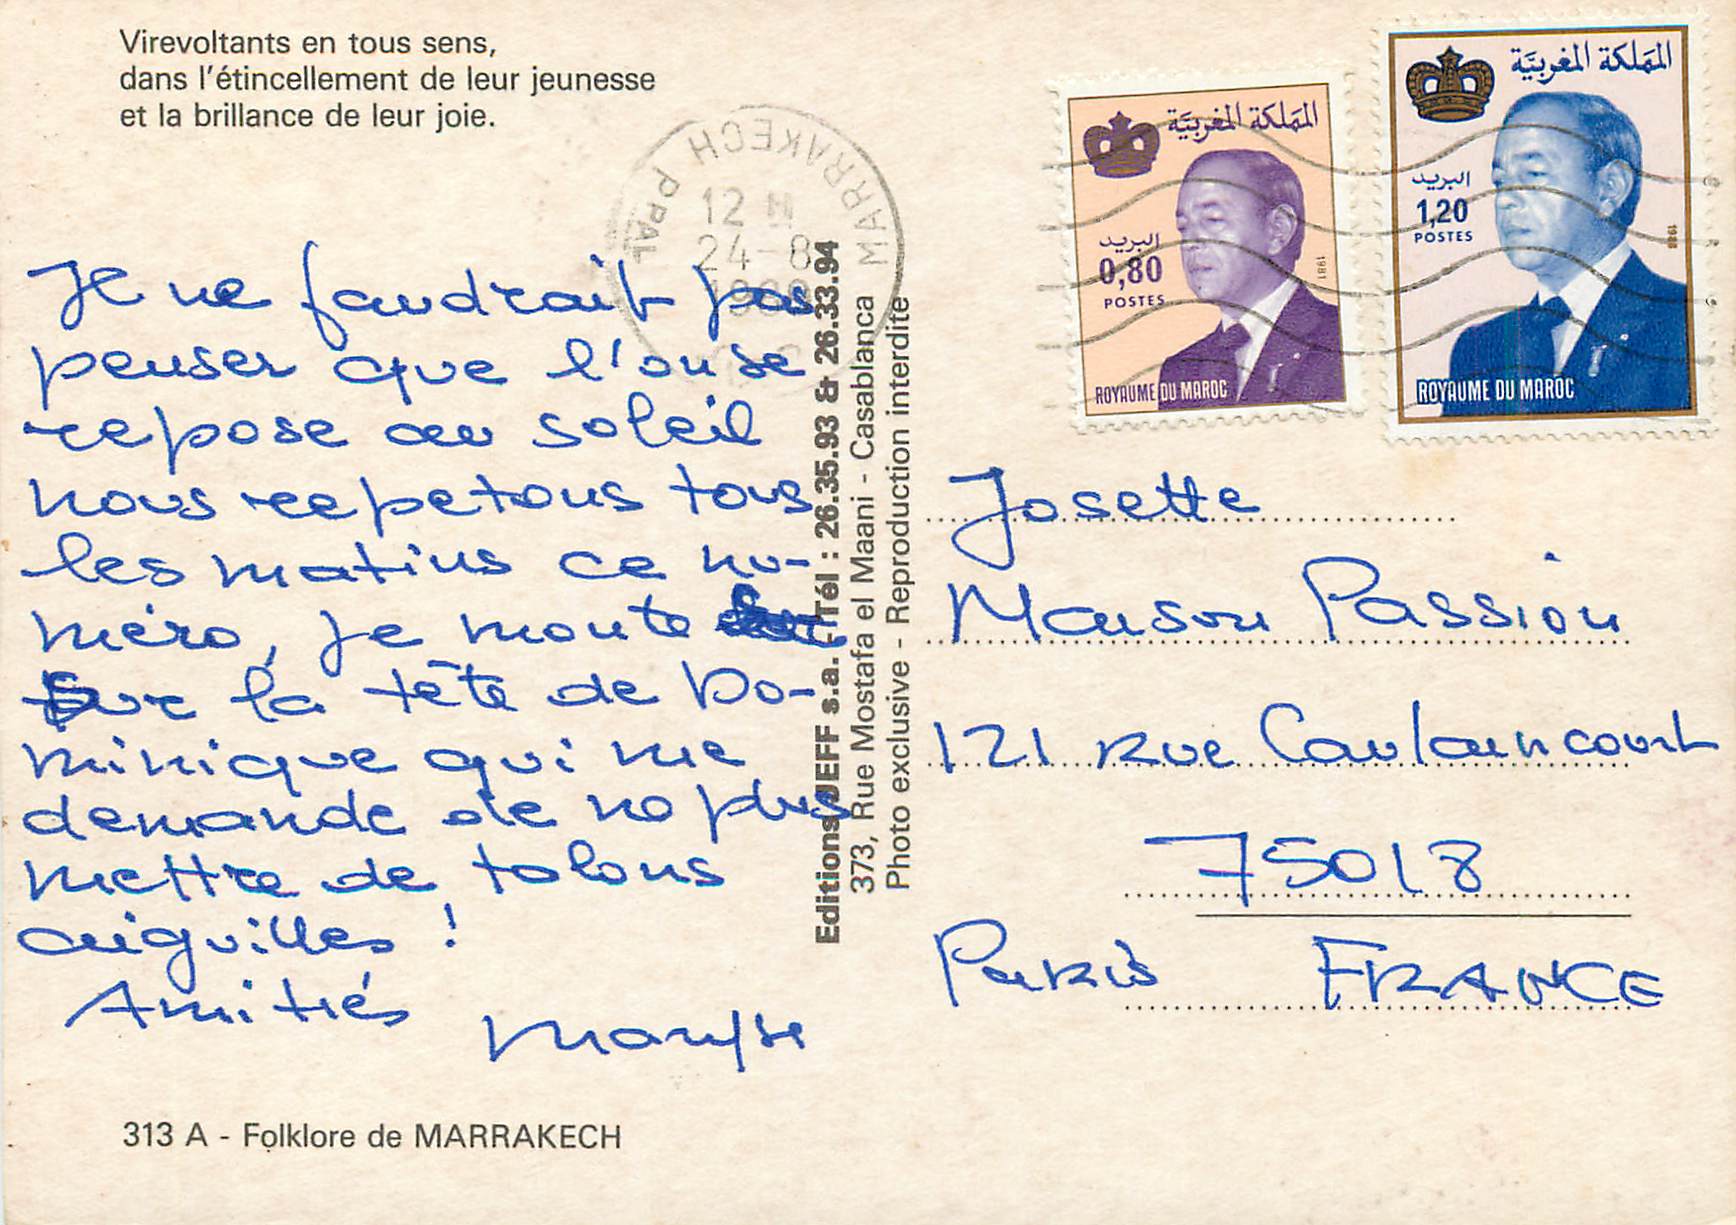 Virevoltants en tous sens,
dans l'étincellement de leur jeunesse
et la brillance de leur joie.
Je ne faudrait pas
penser que l'on se
repose au soleil
nous repetons tous
les matins ce nu-
méro, je monte
sur la tête de Do-
minique qui me
demande de ne plus
mettre de talons
aiguilles !
Amitiés
Maryse
313 A - Folklore de MARRAKECH
Editions JEFF s.a. - Tél : 26.35.93 & 26.33.94
373, Rue Mostafa el Maani - Casablanca
Photo exclusive - Reproduction interdite
MARRAKECH PPAL
12 H
24-8
المملكة المغربية
البريد
0,80
POSTES
1981
ROYAUME DU MAROC
المملكة المغربية
البريد
1,20
POSTES
ROYAUME DU MAROC
Josette
Maison Passion
121 Rue Caulaincourt
75018
Paris FRANCE